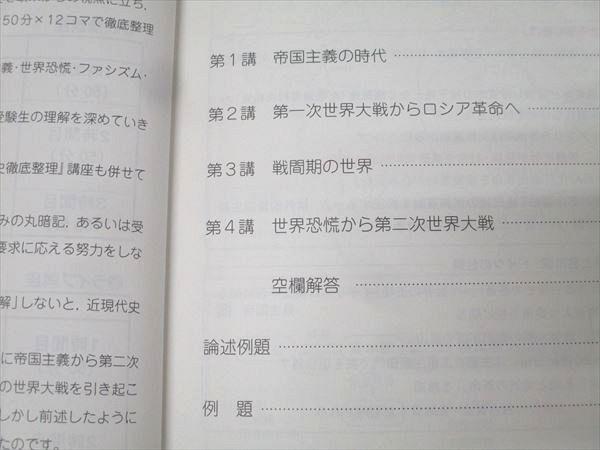 の視点に立ち,
50分×12コマで徹底整理
義・世界恐慌・ファシズム・
受験生の理解を深めていき
史徹底整理』講座も併せて
みの丸暗記, あるいは受
要求に応える努力をしな
解」しないと, 近現代史
に帝国主義から第二次
の世界大戦を引き起こ
しかし前述したように
たのです。
第1講 帝国主義の時代
第2講 第一次世界大戦からロシア革命へ
第3講 戦間期の世界
第4講 世界恐慌から第二次世界大戦
空欄解答
論述例題
例 題